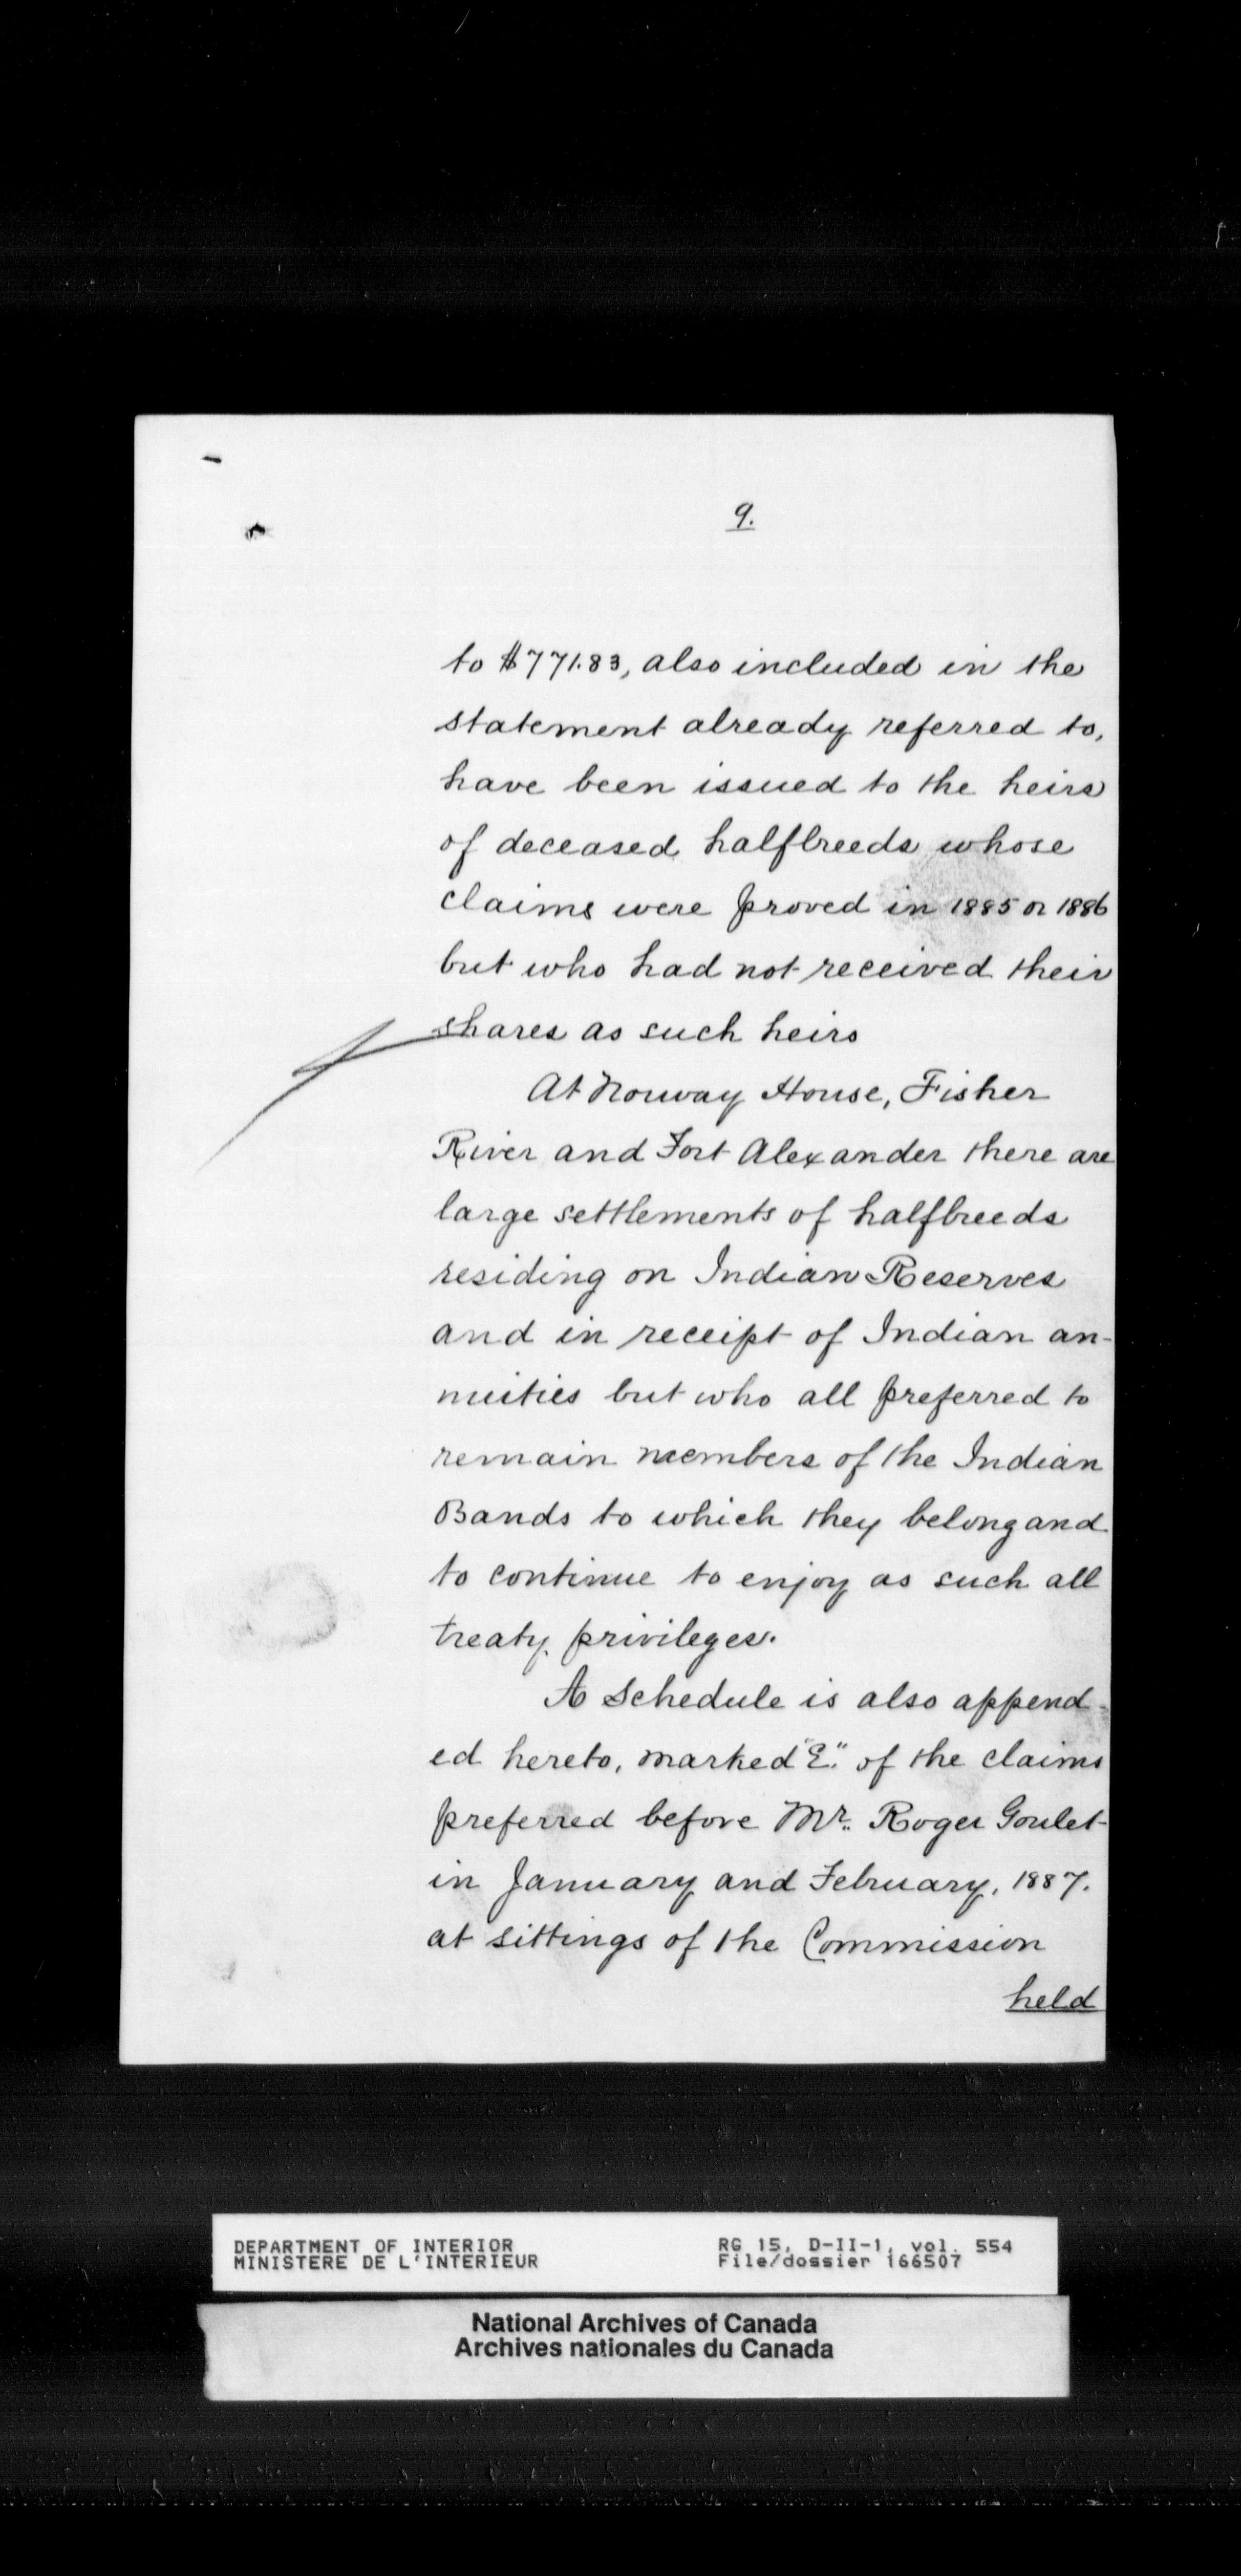 9.
to $771.83, also included in the
statement already referred to,
have been issued to the heirs
of deceased halfbreeds whose
claims were proved in 1885 or 1886
but who had not received their
shares as such heirs
At Norway House, Fisher
River and Fort Alexander there are
large settlements of halfbreeds
residing on Indian Reserves
and in receipt of Indian an-
nuities but who all preferred to
remain members of the Indian
Bands to which they belong and
to continue to enjoy as such all
treaty privileges.
A Schedule is also append-
ed hereto, marked "E." of the claims
preferred before Mr. Roger Goulet
in January and February, 1887.
at sittings of the Commission
held
DEPARTMENT OF INTERIOR RG 15, D-II-1, vol. 554
MINISTERE DE L'INTERIEUR File/dossier 166507
National Archives of Canada
Archives nationales du Canada